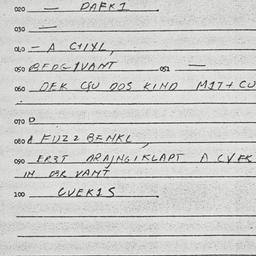 020 — DAFKI
030 —
040 — A CHYL,
050 BEDGIVANT 051 —
060 DEK CSU DOS KIND MIT+ CU
070 D
080 A FUZZ BENKL,
090 ERZT ARAJNGIKLAPT A CVEK
IN DER VANT
100 CVEKIS